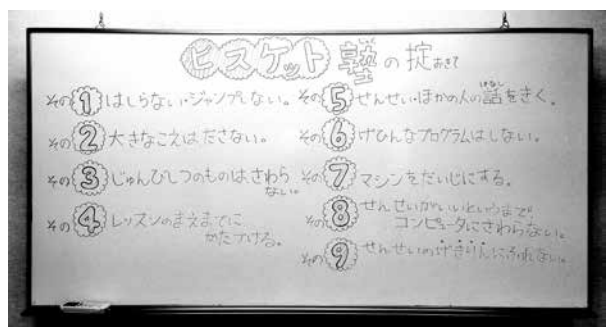 ビスケット塾の掟おきて
その1 はしらない・ジャンプしない。
その2 大きなこえはださない。
その3 じゅんびしつのものは、さわら
ない。
その4 レッスンのまえまでに
かたづける。
その5 せんせい・ほかの人の話をきく。
はなし
その6 げひんなプログラムはしない。
その7 マシンをだいじにする。
その8 せんせいがいいというまで
コンピュータにさわらない。
その9 せんせいのげきりんにふれない。